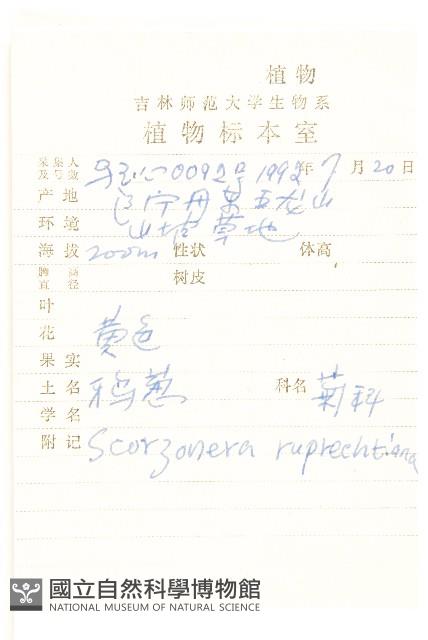 植物
吉林师范大学生物系
植物标本室
采集人及号数 0092号 1992年 7月20日
产地 辽宁丹东五龙山
环境 山坡草地
海拔 200m 性状 体高
胸高直径 树皮
叶
花 黄色
果实
土名 鸦葱 科名 菊科
学名
附记 Scorzonera ruprechtiana
國立自然科學博物館
NATIONAL MUSEUM OF NATURAL SCIENCE